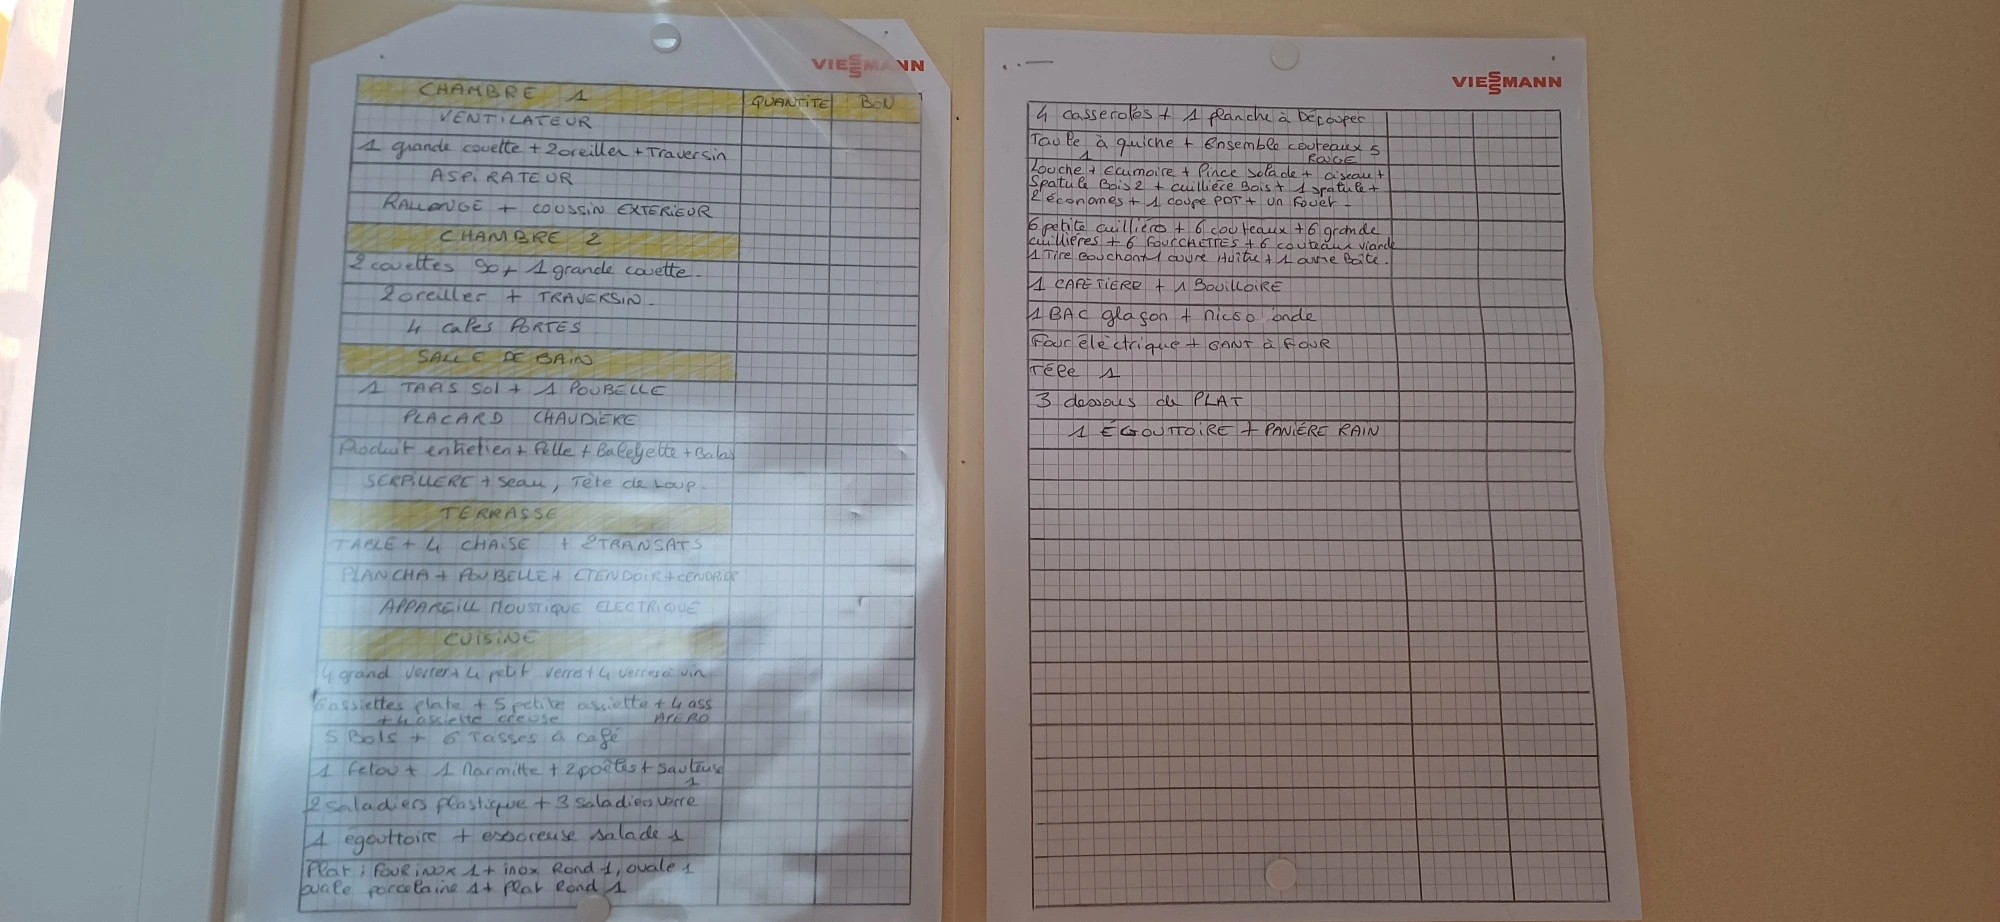 VIESSMANN
CHAMBRE 1 QUANTITE BON
VENTILATEUR
1 grande couette + 2 oreiller + Traversin
ASPIRATEUR
RALLONGE + COUSSIN EXTERIEUR
CHAMBRE 2
2 couettes 90 + 1 grande couette -
2 oreiller + TRAVERSIN -
4 cales PORTES
SALLE DE BAIN
1 TAPIS Sol + 1 POUBELLE
PLACARD CHAUDIERE
Produit entretien + Pelle + Baleyette + Balai
SERPILLERE + seau, Tête de Loup.
TERRASSE
TABLE + 4 CHAISE + 2 TRANSATS
PLANCHA + POUBELLE + ETENDOIR + CENDRIER
APPAREILL MOUSTIQUE ELECTRIQUE
CUISINE
4 grand verres + 4 petit verres + 4 verres à vin
6 assiettes plate + 5 petite assiette + 4 ass
+ 4 assiette creuse APERO
5 Bols + 6 Tasses à café
1 + 1 Marmitte + 2 poêles + Sauteuse
1
2 saladiers plastique + 3 saladiers verre
1 égouttoire + essoreuse salade 1
Plat : FOUR inox 1 + inox Rond 1, ovale 1
ovale porcelaine 1 + plat Rond 1
VIESSMANN
4 casseroles + 1 planche à Découper
à quiche + Ensemble couteaux 5
1 ROUGE
Louche + Ecumoire + Pince Salade + ciseau +
Spatule Bois 2 + cuillière Bois + 1 spatule +
2 économes + 1 coupe PDT + un Fouet -
6 petite cuillières + 6 couteaux + 6 grande
cuillières + 6 FOURCHETTES + 6 couteaux viande
1 Tire Bouchon + 1 ouvre Huitre + 1 ouvre Boite.
1 CAFETIERE + 1 BOUILLOIRE
1 BAC glaçon + micso onde
Four éléctrique + GANT à FOUR
Télé 1
3 dessous de PLAT
1 ÉGOUTTOIRE + PANIÈRE